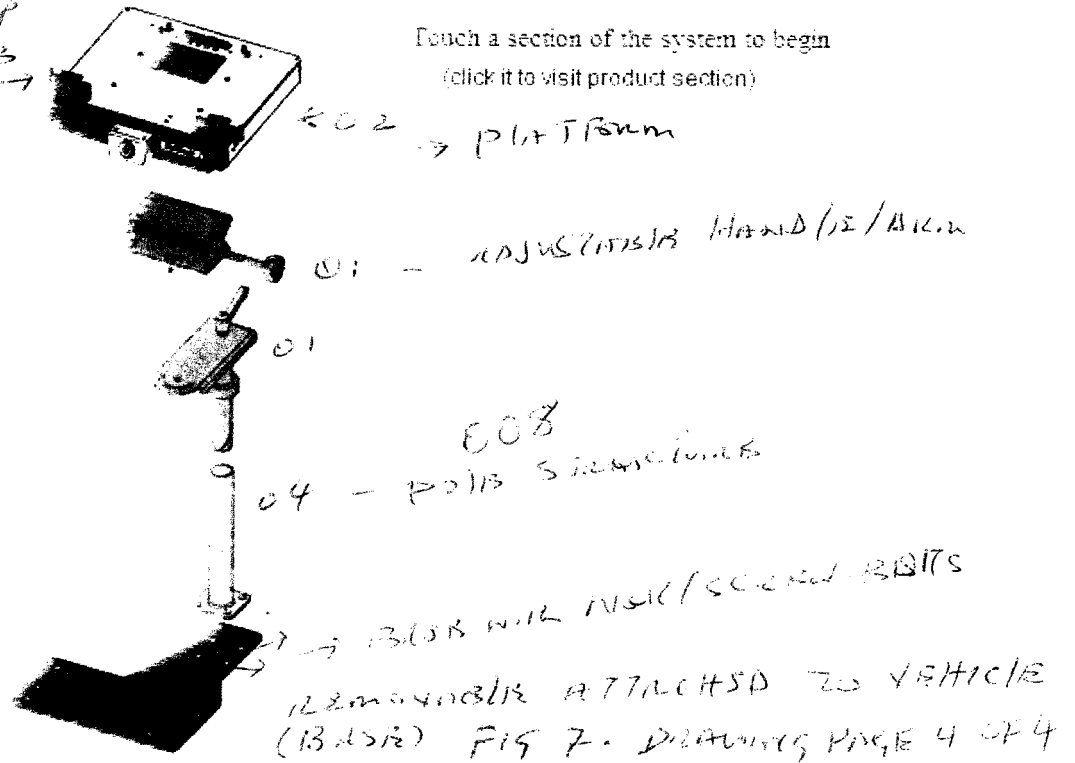 Touch a section of the system to begin
(click it to visit product section)
602 → PLATFORM
01 - ADJUSTABLE HANDLE/ARM
01
608
04 - POLE STRUCTURE
→ BASE WITH / SCREW BOLTS
REMOVABLE ATTACHED TO VEHICLE
(BASE) FIG 7. DRAWING PAGE 4 OF 4